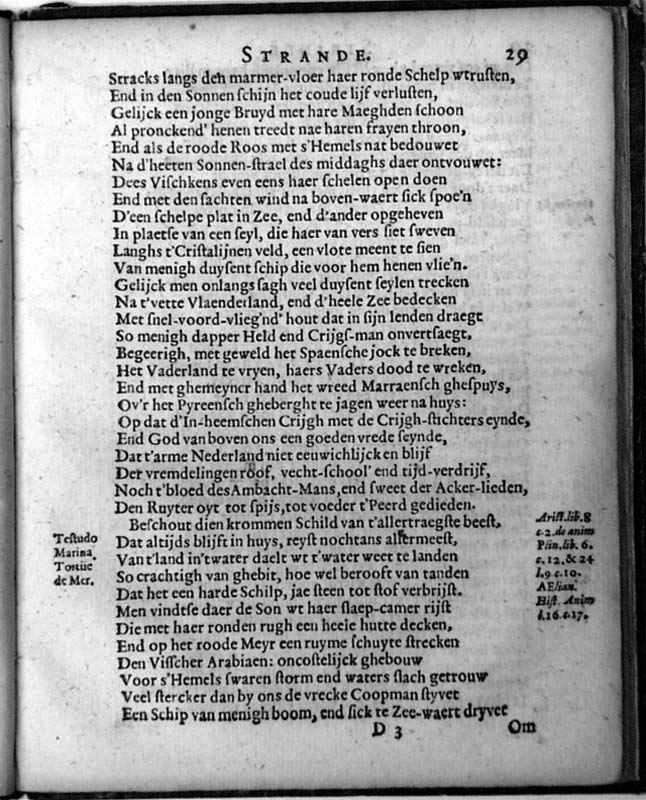 STRANDE. 29
Stracks langs den marmer-vloer haer ronde Schelp wtrusten,
End in den Sonnen schijn het coude lijf verlusten,
Gelijck een jonge Bruyd met hare Maeghden schoon
Al pronckend' henen treedt nae haren frayen throon,
End als de roode Roos met s'Hemels nat bedouwet
Na d'heeten Sonnen-strael des middaghs daer ontvouwet:
Dees Vischkens even eens haer schelen open doen
End met den sachten wind na boven-waert sick spoe'n
D'een schelpe plat in Zee, end d'ander opgeheven
In plaetse van een seyl, die haer van vers siet sweven
Langhs t'Cristalijnen veld, een vlote meent te sien
Van menigh duysent schip die voor hem henen vlie'n.
Gelijck men onlangs sagh veel duysent seylen trecken
Na t'vette Vlaenderland, end d'heele Zee bedecken
Met snel-voord-vlieg'nd' hout dat in sijn lenden draegt
So menigh dapper Held end Crijgs-man onvertsaegt,
Begeerigh, met geweld het Spaensche jock te breken,
Het Vaderland te vryen, haers Vaders dood te wreken,
End met ghemeyner hand het wreed Marraensch ghespuys,
Ov'r het Pyreensch gheberght te jagen weer na huys:
Op dat d'In-heemschen Crijgh met de Crijgh-stichters eynde,
End God van boven ons een goeden vrede seynde,
Dat t'arme Nederland niet eeuwichlijcken blijf
Der vremdelingen roof, vecht-school' end tijd-verdrijf,
Noch t'bloed des Ambacht-Mans, end sweet der Acker-lieden,
Den Ruyter oyt tot spijs, tot voeder t'Peerd gedieden.
Beschout dien krommen Schild van t'allertraegste beest,
Dat altijds blijft in huys, reyst nochtans allermeest,
Van t'land in't water daelt wt t'water weet te landen
So crachtigh van ghebit, hoe wel berooft van tanden
Dat het een harde Schilp, jae steen tot stof verbrijst.
Men vindtse daer de Son wt haer slaep-camer rijst
Die met haer ronden rugh een heele hutte decken,
End op het roode Meyr een ruyme schuyte strecken
Den Visscher Arabiaen: oncostelijck ghebouw
Voor s'Hemels swaren storm end waters slach getrouw
Veel stercker dan by ons de vrecke Coopman styvet
Een Schip van menigh boom, end sick te Zee-waert dryvet
D 3 Om
Testudo
Marina,
Tortue
de Mer.
Arist. lib. 8
c. 2. de anim
Plin. lib. 6.
c. 12. & 24
l. 9 c. 10.
AElian.
Hist. Anim
l. 16. c. 17.